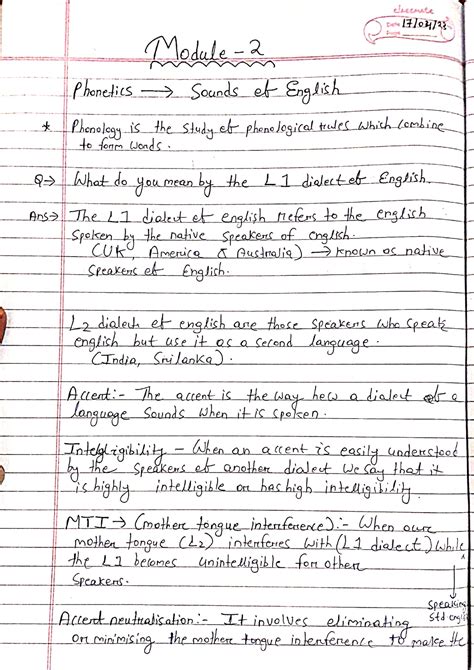 classmate
Date 17/04/23
Page
Module - 2
Phonetics → Sounds of English
* Phonology is the study of phonological rules which combine
to form words.
Q→ What do you mean by the L1 dialect of English.
Ans→ The L1 dialect of english refers to the english
spoken by the native speakers of english.
(UK, America & Australia) → known as native
speakers of English.
L2 dialect of english are those speakers who speak
english but use it as a second language.
(India, Srilanka).
Accent:- The accent is the way how a dialect of a
language sounds when it is spoken.
Intelligibility - When an accent is easily understood
by the speakers of another dialect we say that it
is highly intelligible or has high intelligibility.
MTI → (mother tongue interference):- When our
mother tongue (L2) interferes with (L1 dialect) while
the L1 becomes unintelligible for other
speakers.
speaking
Std english
Accent neutralisation:- It involves eliminating
or minimising the mother tongue interference to make the